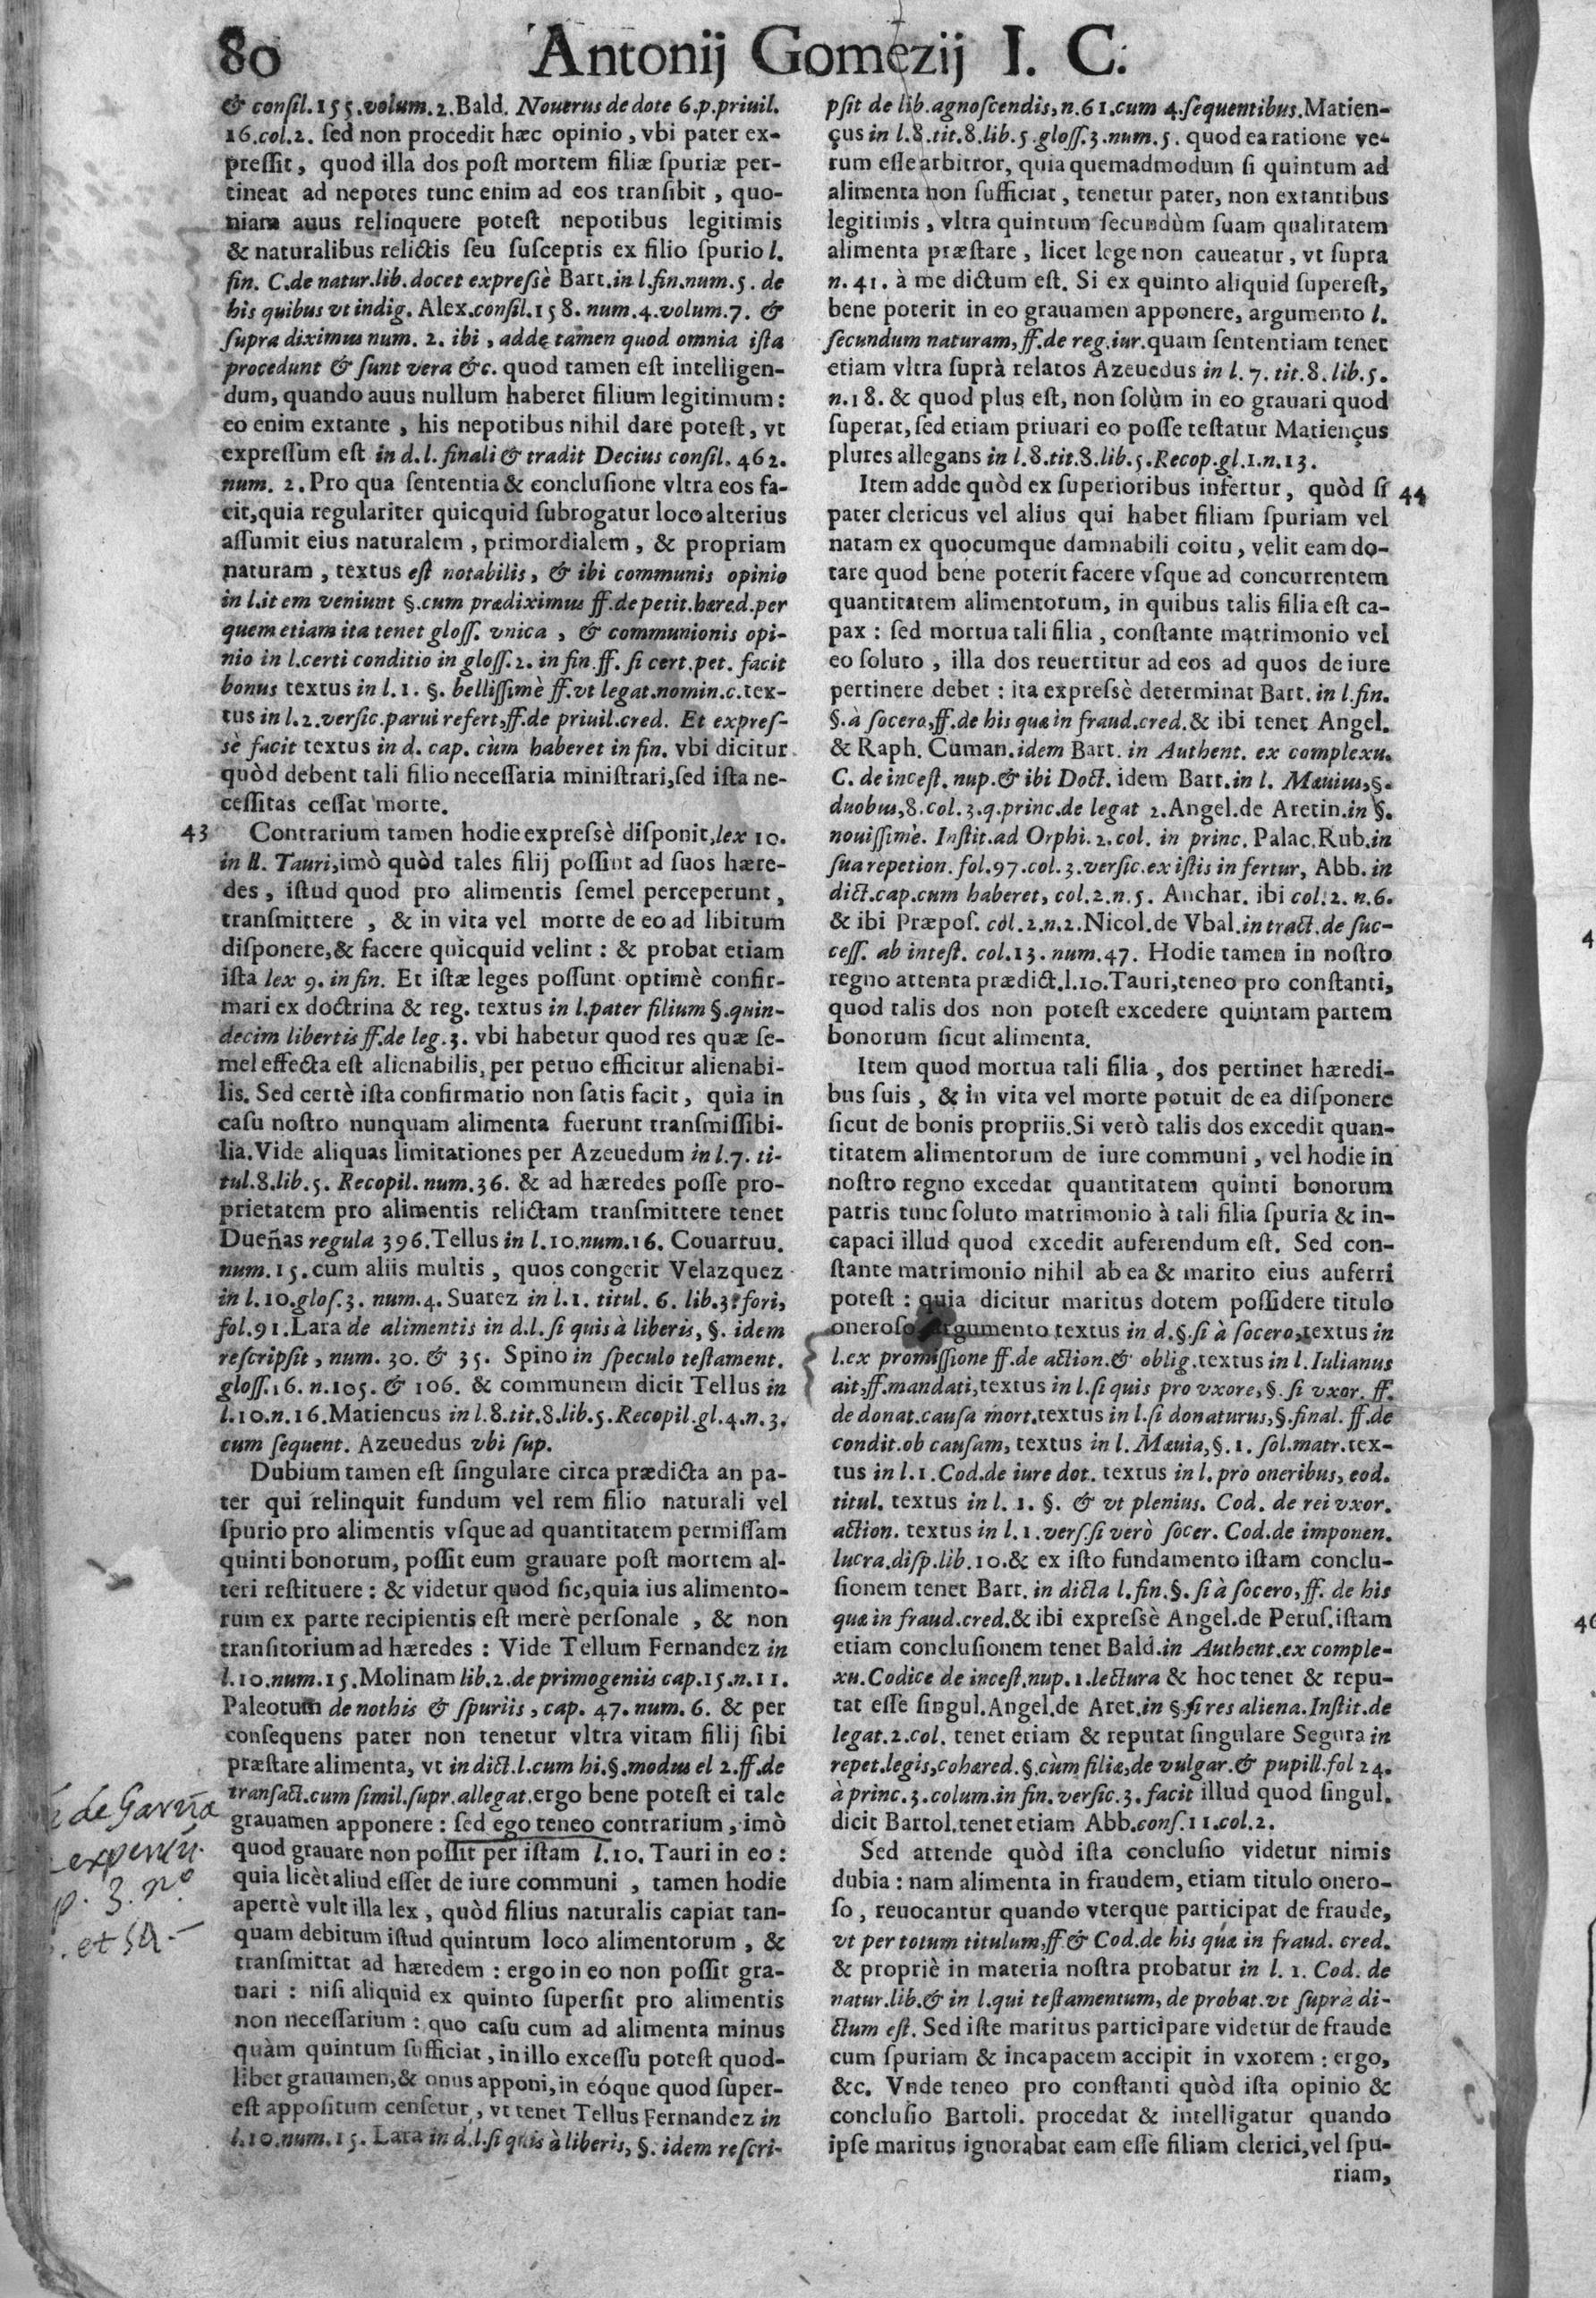 80 Antonij Gomezij I. C.
& consil.155.volum.2.Bald. Nouerus de dote 6.p.priuil.
16.col.2. sed non procedit hæc opinio, vbi pater ex-
pressit, quod illa dos post mortem filiæ spuriæ per-
tineat ad nepotes tunc enim ad eos transibit, quo-
niam auus relinquere potest nepotibus legitimis
& naturalibus relictis seu susceptis ex filio spurio l.
fin. C.de natur.lib.docet expressè Bart.in l.fin.num.5. de
his quibus vt indig. Alex.consil.158. num.4.volum.7. &
supra diximus num. 2. ibi, adde tamen quod omnia ista
procedunt & sunt vera &c. quod tamen est intelligen-
dum, quando auus nullum haberet filium legitimum:
eo enim extante, his nepotibus nihil dare potest, vt
expressum est in d.l. finali & tradit Decius consil. 462.
num. 2. Pro qua sententia & conclusione vltra eos fa-
cit, quia regulariter quicquid subrogatur loco alterius
assumit eius naturalem, primordialem, & propriam
naturam, textus est notabilis, & ibi communis opinio
in l.item veniunt §.cum prædiximus ff.de petit.hæred.per
quem etiam ita tenet gloss. vnica, & communionis opi-
nio in l.certi conditio in gloss.2. in fin.ff. si cert.pet. facit
bonus textus in l. 1. §. bellissimè ff.vt legat.nomin.c.tex-
tus in l.2.versic.parui refert,ff.de priuil.cred. Et expres-
sè facit textus in d. cap. cùm haberet in fin. vbi dicitur
quòd debent tali filio necessaria ministrari, sed ista ne-
cessitas cessat morte.
43 Contrarium tamen hodie expressè disponit, lex 10.
in ll. Tauri, imò quòd tales filij possint ad suos hære-
des, istud quod pro alimentis semel perceperunt,
transmittere, & in vita vel morte de eo ad libitum
disponere, & facere quicquid velint: & probat etiam
ista lex 9. in fin. Et istæ leges possunt optimè confir-
mari ex doctrina & reg. textus in l.pater filium §.quin-
decim libertis ff.de leg.3. vbi habetur quod res quæ se-
mel effecta est alienabilis, per petuo efficitur alienabi-
lis. Sed certè ista confirmatio non satis facit, quia in
casu nostro nunquam alimenta fuerunt transmissibi-
lia. Vide aliquas limitationes per Azeuedum in l.7. ti-
tul.8.lib.5. Recopil.num.36. & ad hæredes posse pro-
prietatem pro alimentis relictam transmittere tenet
Dueñas regula 396. Tellus in l.10.num.16. Couartuu.
num.15. cum aliis multis, quos congerit Velazquez
in l.10.glos.3. num.4. Suarez in l.1. titul. 6. lib.3. fori,
fol.91.Lara de alimentis in d.l.si quis à liberis, §. idem
rescripsit, num. 30. & 35. Spino in speculo testament.
gloss.16. n.105. & 106. & communem dicit Tellus in
l.10.n.16. Matiencus in l.8.tit.8.lib.5.Recopil.gl.4.n.3.
cum sequent. Azeuedus vbi sup.
Dubium tamen est singulare circa prædicta an pa-
ter qui relinquit fundum vel rem filio naturali vel
spurio pro alimentis vsque ad quantitatem permissam
quinti bonorum, possit eum grauare post mortem al-
teri restituere: & videtur quod sic, quia ius alimento-
rum ex parte recipientis est merè personale, & non
transitorium ad hæredes: Vide Tellum Fernandez in
l.10.num.15. Molinam lib.2.de primogeniis cap.15.n.11.
Paleotum de nothis & spuriis, cap. 47. num. 6. & per
consequens pater non tenetur vltra vitam filij sibi
præstare alimenta, vt in dict.l.cum hi.§.modus el 2.ff.de
transact.cum simil.supr.allegat.ergo bene potest ei tale
grauamen apponere: sed ego teneo contrarium, imò
quod grauare non possit per istam l.10. Tauri in eo:
quia licèt aliud esset de iure communi, tamen hodie
apertè vult illa lex, quòd filius naturalis capiat tan-
quam debitum istud quintum loco alimentorum, &
transmittat ad hæredem: ergo in eo non possit gra-
uari: nisi aliquid ex quinto supersit pro alimentis
non necessarium: quo casu cum ad alimenta minus
quàm quintum sufficiat, in illo excessu potest quod-
libet grauamen, & onus apponi, in eóque quod super-
est appositum censetur, vt tenet Tellus Fernandez in
l.10.num.15. Lara in d.l.si quis à liberis, §. idem rescri-
de Garçia
p. 3. nº
et 52.
psit de lib.agnoscendis, n.61.cum 4.sequentibus. Matien-
çus in l.8.tit.8.lib.5.gloss.3.num.5. quod ea ratione ve-
rum esse arbitror, quia quemadmodum si quintum ad
alimenta non sufficiat, tenetur pater, non extantibus
legitimis, vltra quintum secundùm suam qualitatem
alimenta præstare, licet lege non caueatur, vt supra
n.41. à me dictum est. Si ex quinto aliquid superest,
bene poterit in eo grauamen apponere, argumento l.
secundum naturam, ff.de reg.iur.quam sententiam tenet
etiam vltra suprà relatos Azeuedus in l.7. tit.8. lib.5.
n.18. & quod plus est, non solùm in eo grauari quod
superat, sed etiam priuari eo posse testatur Matiençus
plures allegans in l.8.tit.8.lib.5.Recop.gl.1.n.13.
Item adde quòd ex superioribus infertur, quòd si 44
pater clericus vel alius qui habet filiam spuriam vel
natam ex quocumque damnabili coitu, velit eam do-
tare quod bene poterit facere vsque ad concurrentem
quantitatem alimentorum, in quibus talis filia est ca-
pax: sed mortua tali filia, constante matrimonio vel
eo soluto, illa dos reuertitur ad eos ad quos de iure
pertinere debet: ita expressè determinat Bart. in l.fin.
§.à socero, ff.de his quæ in fraud.cred.& ibi tenet Angel.
& Raph. Cuman.idem Bart. in Authent. ex complexu.
C. de incest. nup.& ibi Doct. idem Bart.in l. Mæuius, §.
duobus, 8.col.3.q.princ.de legat 2. Angel.de Aretin.in §.
nouissimè. Instit.ad Orphi.2.col. in princ. Palac.Rub.in
sua repetion. fol.97.col.3.versic.ex istis in fertur, Abb. in
dict.cap.cum haberet, col.2.n.5. Anchar. ibi col.2. n.6.
& ibi Præpos. col.2.n.2.Nicol.de Vbal.in tract.de suc-
cess. ab intest. col.13. num.47. Hodie tamen in nostro
regno attenta prædict.l.10.Tauri, teneo pro constanti,
quod talis dos non potest excedere quintam partem
bonorum sicut alimenta.
Item quod mortua tali filia, dos pertinet hæredi-
bus suis, & in vita vel morte potuit de ea disponere
sicut de bonis propriis. Si verò talis dos excedit quan-
titatem alimentorum de iure communi, vel hodie in
nostro regno excedat quantitatem quinti bonorum
patris tunc soluto matrimonio à tali filia spuria & in-
capaci illud quod excedit auferendum est. Sed con-
stante matrimonio nihil ab ea & marito eius auferri
potest: quia dicitur maritus dotem possidere titulo
oneroso argumento textus in d.§.si à socero, textus in
l.ex promissione ff.de action.& oblig.textus in l. Iulianus
ait, ff.mandati, textus in l.si quis pro vxore, §. si vxor. ff.
de donat.causa mort.textus in l.si donaturus, §.final. ff.de
condit.ob causam, textus in l. Mæuia, §. 1. sol.matr.tex-
tus in l.1. Cod.de iure dot. textus in l. pro oneribus, eod.
titul. textus in l. 1. §. & vt plenius. Cod. de rei vxor.
action. textus in l. 1.vers.si verò socer. Cod.de imponen.
lucra.disp.lib.10.& ex isto fundamento istam conclu-
sionem tenet Bart. in dicta l.fin.§. si à socero, ff. de his
quæ in fraud.cred.& ibi expressè Angel.de Perus.istam
etiam conclusionem tenet Bald.in Authent.ex comple-
xu.Codice de incest.nup.1.lectura & hoc tenet & repu-
tat esse singul.Angel.de Aret.in §.si res aliena.Instit.de
legat.2.col. tenet etiam & reputat singulare Segura in
repet.legis, cohæred.§.cùm filiæ, de vulgar.& pupill.fol 24.
à princ.3.colum.in fin.versic.3. facit illud quod singul.
dicit Bartol.tenet etiam Abb.cons.11.col.2.
Sed attende quòd ista conclusio videtur nimis
dubia: nam alimenta in fraudem, etiam titulo onero-
so, reuocantur quando vterque participat de fraude,
vt per totum titulum, ff & Cod.de his quæ in fraud. cred.
& propriè in materia nostra probatur in l. 1. Cod. de
natur.lib.& in l.qui testamentum, de probat.vt suprà di-
ctum est. Sed iste maritus participare videtur de fraude
cum spuriam & incapacem accipit in vxorem: ergo,
&c. Vnde teneo pro constanti quòd ista opinio &
conclusio Bartoli. procedat & intelligatur quando
ipse maritus ignorabat eam esse filiam clerici, vel spu-
riam,